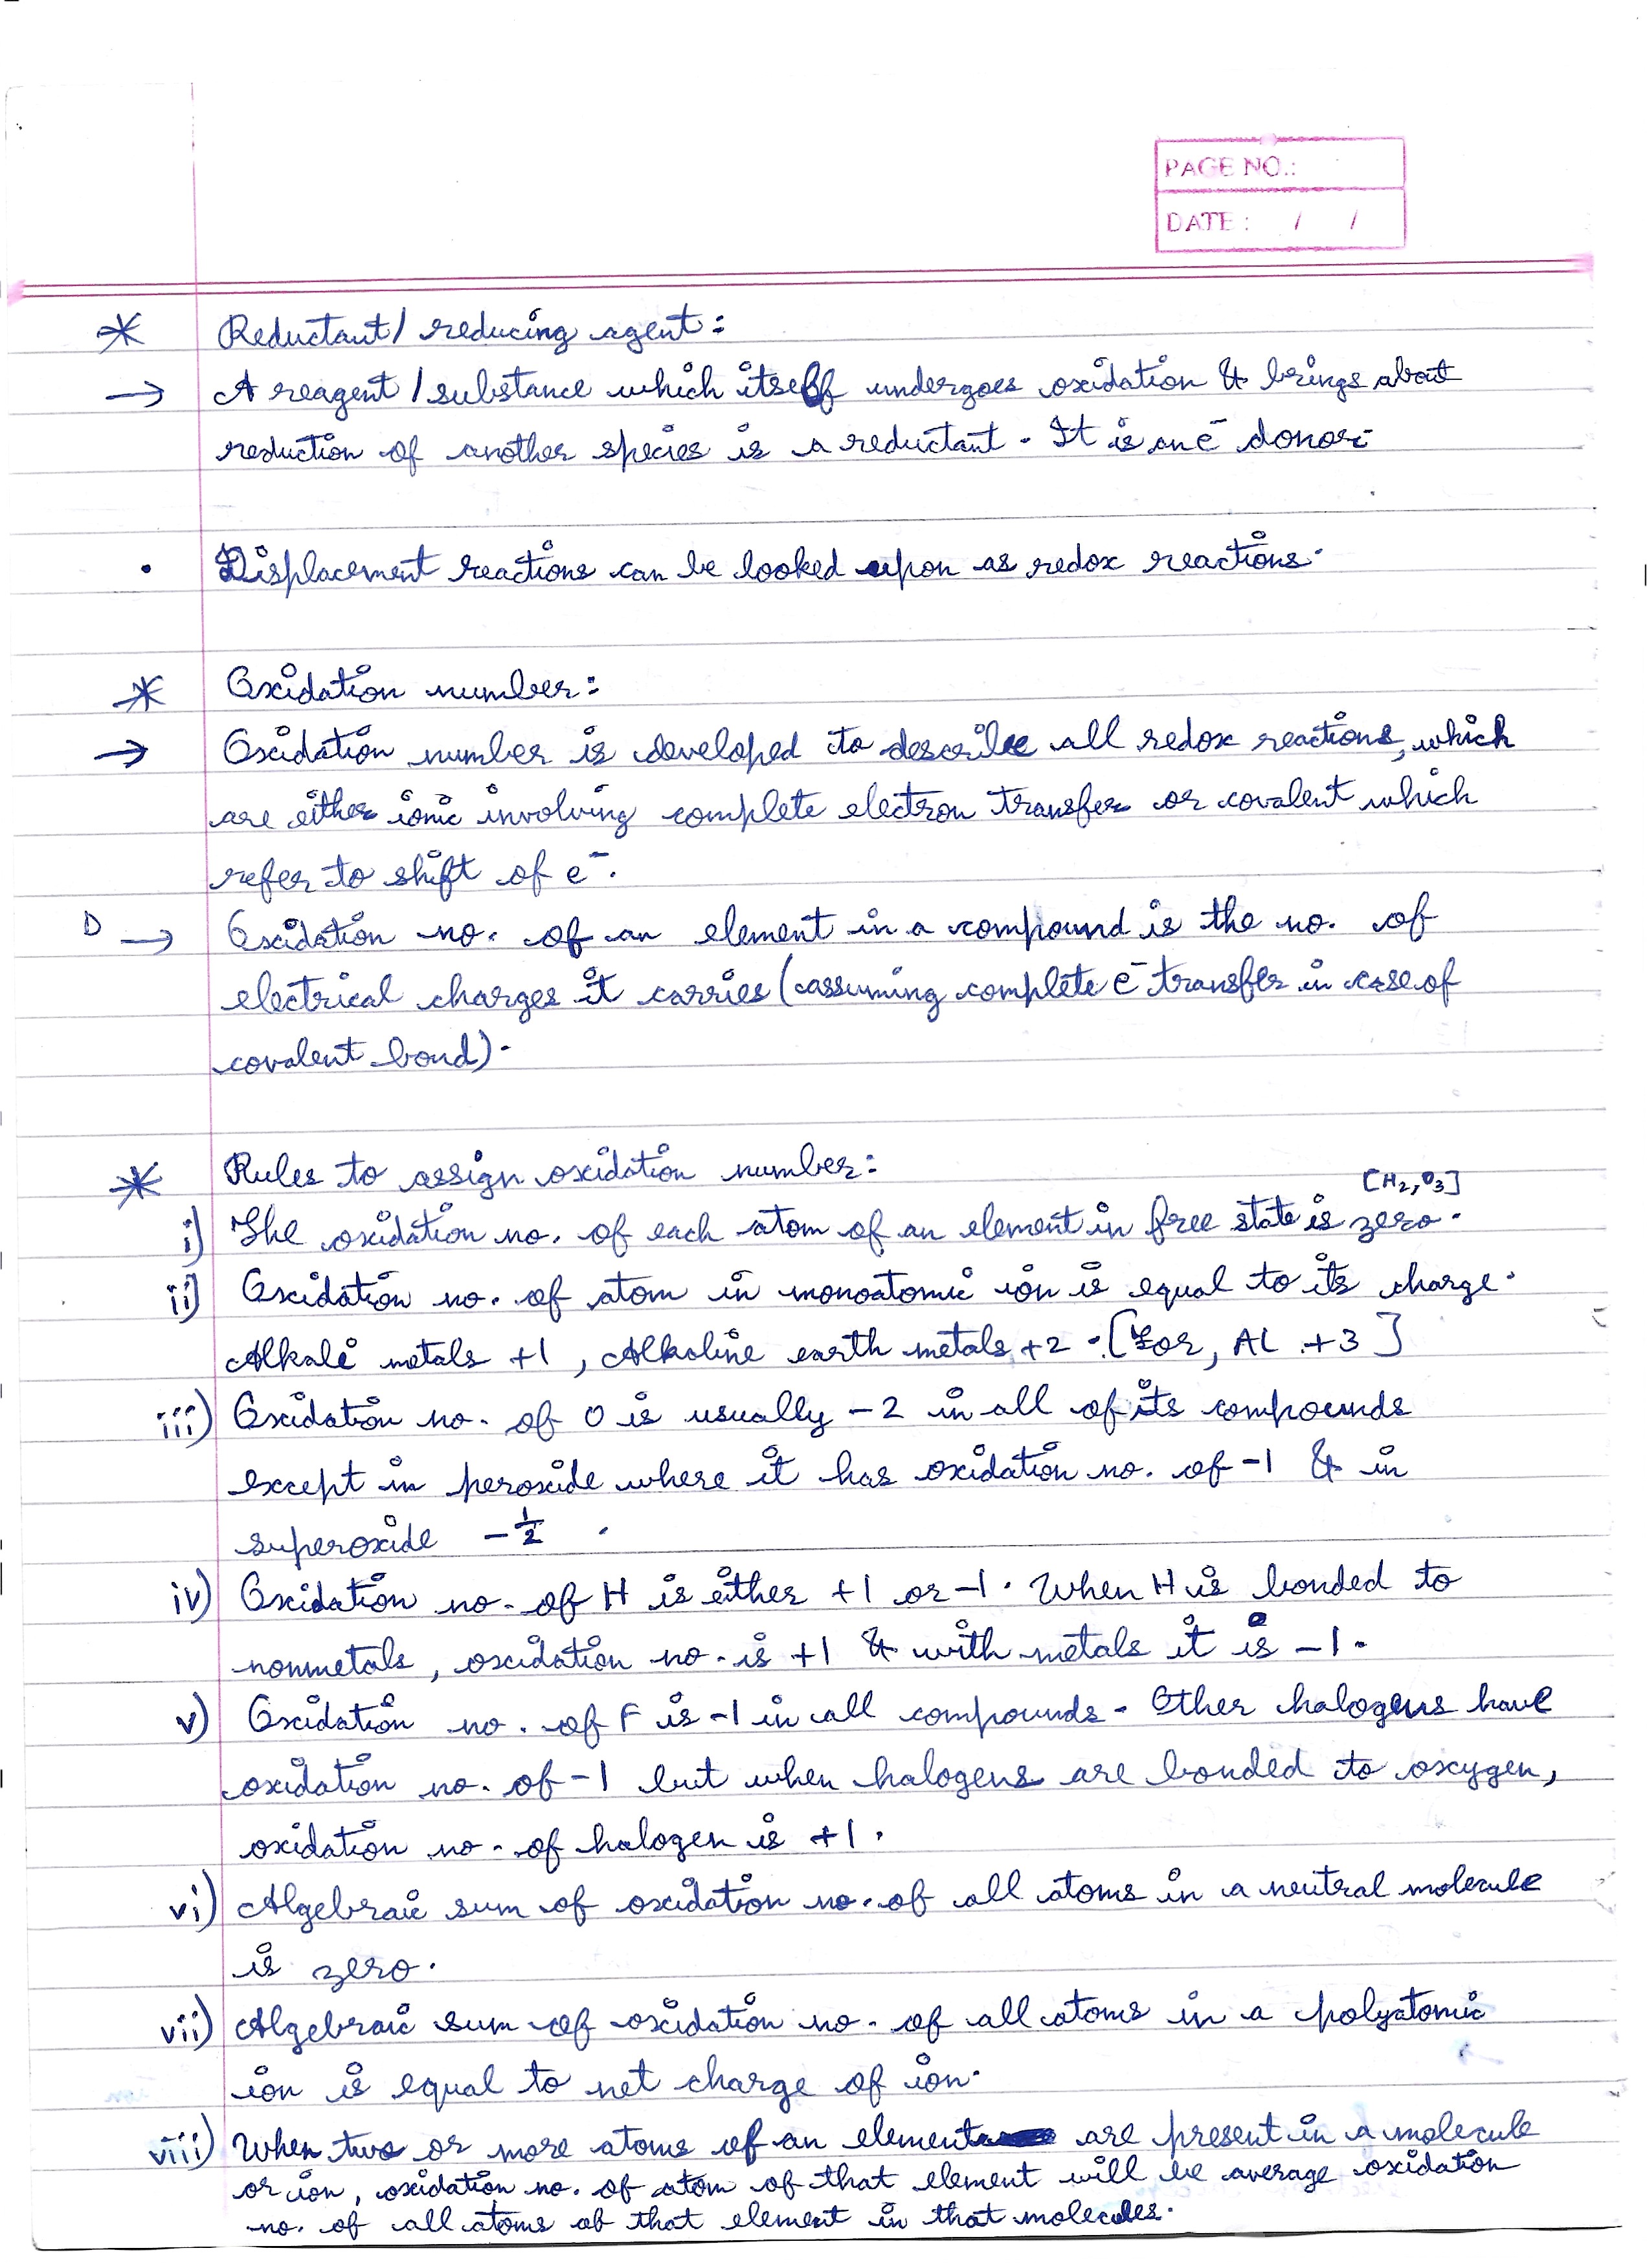 PAGE NO.:
DATE : / /
* Reductant/ reducing agent:
→ A reagent / substance which itself undergoes oxidation & brings about
reduction of another species is a reductant. It is an e⁻ donor.
• Displacement reactions can be looked upon as redox reactions.
* Oxidation number:
→ Oxidation number is developed to describe all redox reactions, which
are either ionic involving complete electron transfer or covalent which
refer to shift of e⁻.
D → Oxidation no. of an element in a compound is the no. of
electrical charges it carries (assuming complete e⁻ transfer in case of
covalent bond).
* Rules to assign oxidation number:
[H₂, O₃]
i) The oxidation no. of each atom of an element in free state is zero.
ii) Oxidation no. of atom in monoatomic ion is equal to its charge.
Alkali metals +1, Alkaline earth metals +2. [For, Al +3]
iii) Oxidation no. of O is usually -2 in all of its compounds
except in peroxide where it has oxidation no. of -1 & in
superoxide -1/2.
iv) Oxidation no. of H is either +1 or -1. When H is bonded to
nonmetals, oxidation no. is +1 & with metals it is -1.
v) Oxidation no. of F is -1 in all compounds. Other halogens have
oxidation no. of -1 but when halogens are bonded to oxygen,
oxidation no. of halogen is +1.
vi) Algebraic sum of oxidation no. of all atoms in a neutral molecule
is zero.
vii) Algebraic sum of oxidation no. of all atoms in a polyatomic
ion is equal to net charge of ion.
viii) When two or more atoms of an element are present in a molecule
or ion, oxidation no. of atom of that element will be average oxidation
no. of all atoms of that element in that molecules.